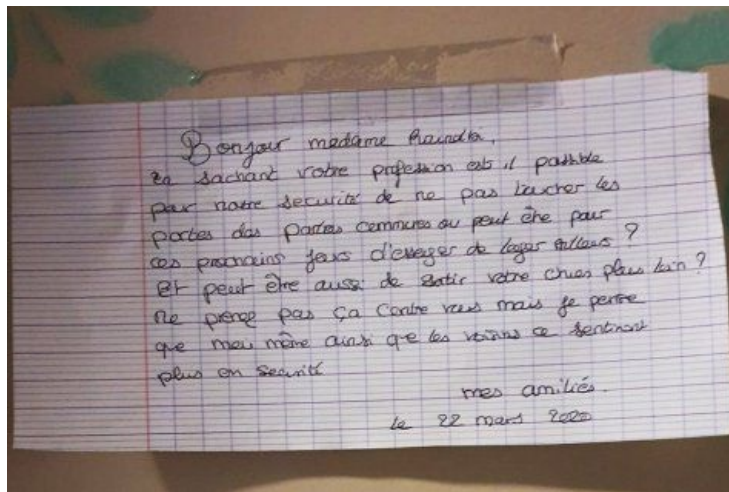 Bonjour madame
en sachant votre profession est il possible
pour notre securité de ne pas toucher les
portes des parties communes ou peut être pour
ces prochains jours d'essayer de loger ailleurs ?
et peut être aussi de sortir votre chien plus loin ?
ne prenez pas ça contre vous mais je pense
que moi même ainsi que les voisins se sentiront
plus en securité
mes amitiés.
le 22 mars 2020